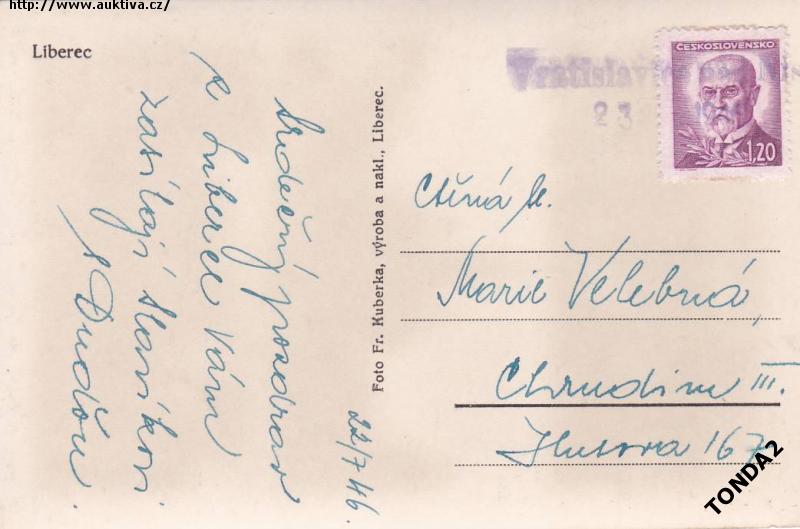 http://www.auktiva.cz/
Liberec
Srdečný pozdrav
z Liberce Vám
zasílají Slavíkovi
22/7 46.
Foto Fr. Kuberka, výroba a nakl., Liberec.
ČESKOSLOVENSKO
1,20
23
Ctěná sl.
Marie Velebná,
Chrudim III.
Husova 167
TONDA2